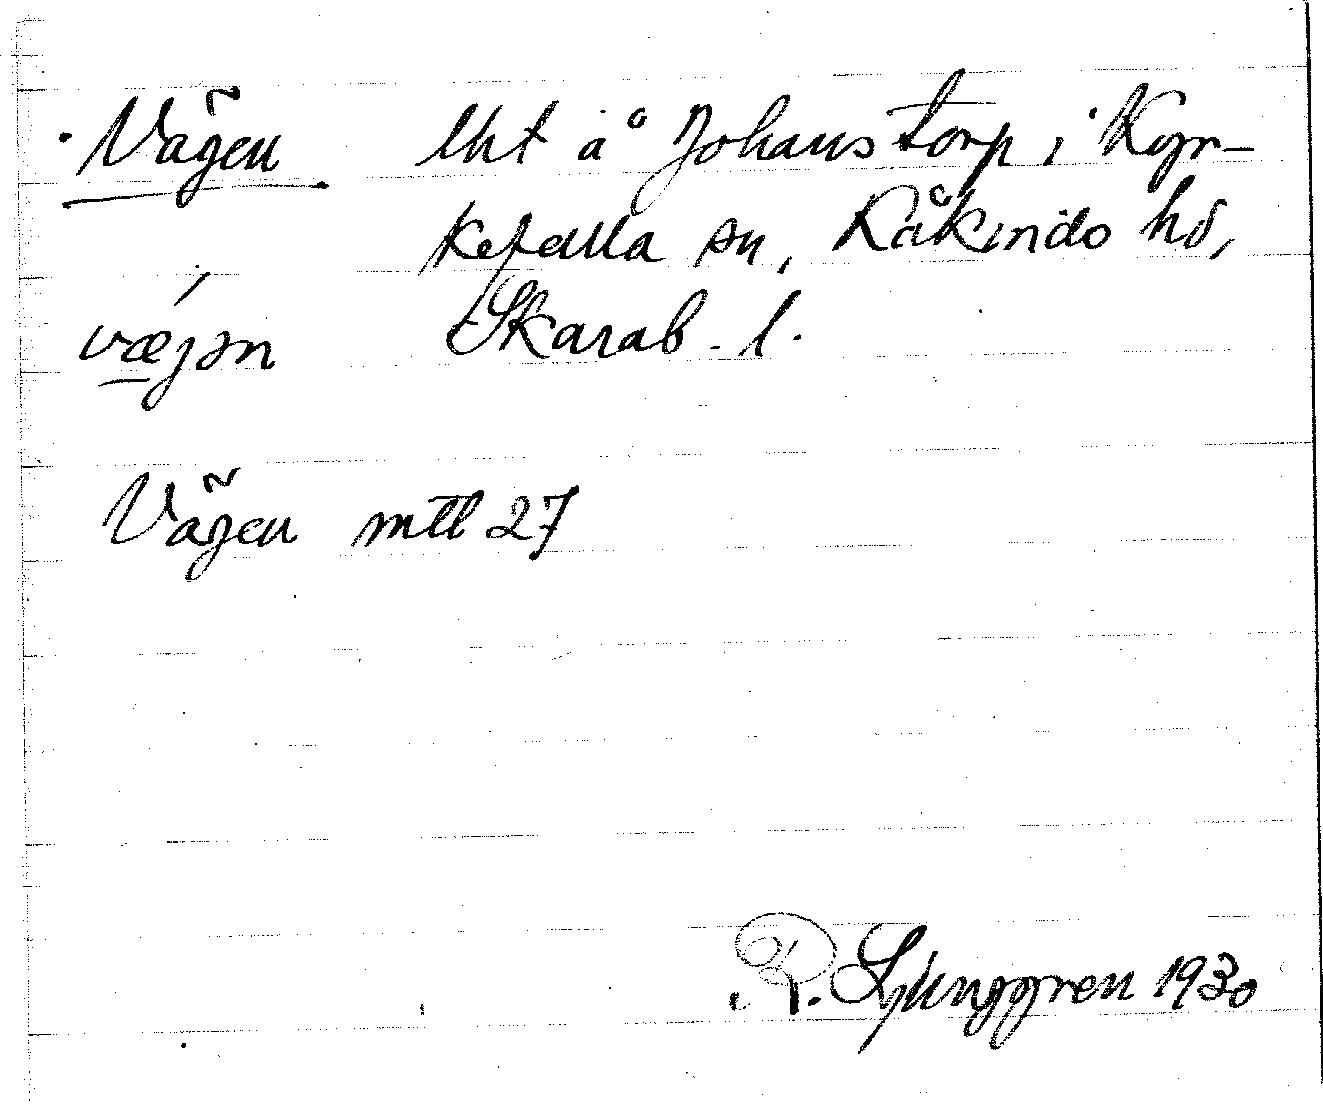 Vägen lht å Johanstorp i Kyr-
ketalla sn, Kåkinds hd,
væjən Skarab. l.
Vägen mtl 27
R. Ljunggren 1930